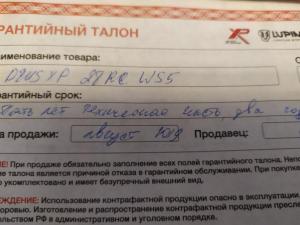 РАНТИЙНЫЙ ТАЛОН
XP LUPIN
именование товара:
DEUS XP 28RC WS5
арантийный срок:
пять лет техническая часть, два го
а продажи: август Продавец:
ИЕ! При продаже обязательно заполнение всех полей гарантийного талона. Неп
ие талона является причиной отказа в гарантийном обслуживании. При покупке
о укомплектовано и имеет безупречный внешний вид.
ЕЖДЕНИЕ: Использование контрафактной продукции опасно в эксплуатации.
оровью. Изготовление и распространение контрафактной продукции пресле
льством РФ в административном и уголовном порядке.